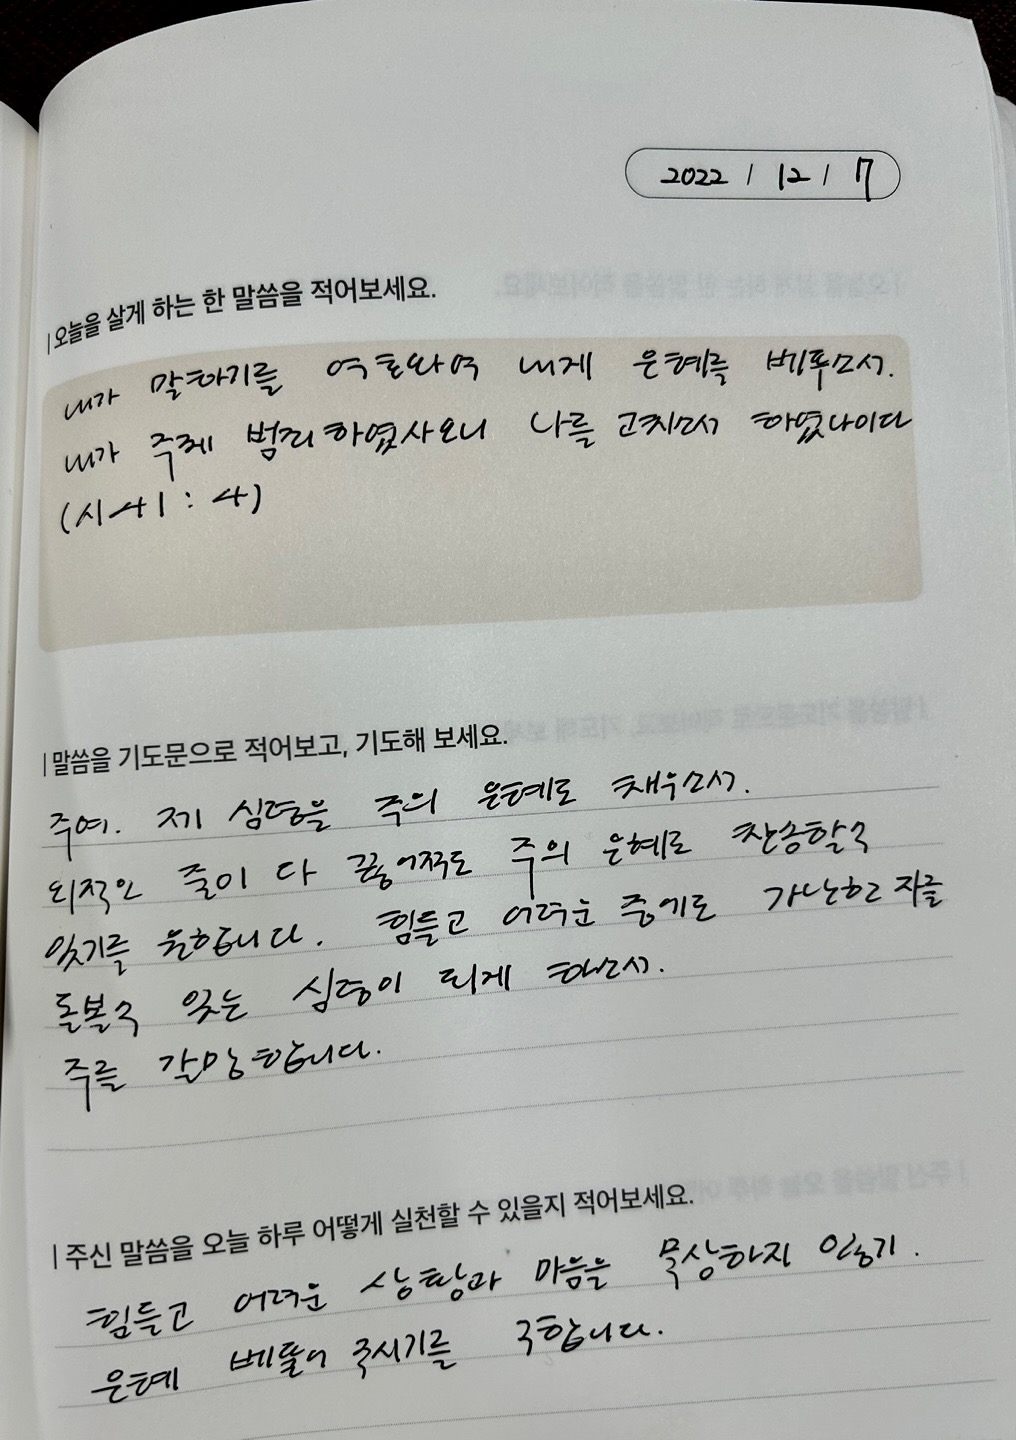 2022 / 12 / 7
오늘을 살게 하는 한 말씀을 적어보세요.
내가 말하기를 여호와여 내게 은혜를 베푸소서.
내가 주께 범죄하였사오니 나를 고치소서 하였나이다
(시 41 : 4)
말씀을 기도문으로 적어보고, 기도해 보세요.
주여. 제 심령을 주의 은혜로 채우소서.
외적인 줄이 다 끊어져도 주의 은혜로 찬송할수
있기를 원합니다. 힘들고 어려운 중에도 가난한 자를
돌볼수 있는 심령이 되게 하소서.
주를 갈망합니다.
주신 말씀을 오늘 하루 어떻게 실천할 수 있을지 적어보세요.
힘들고 어려운 상황과 마음을 묵상하지 않기.
은혜 베풀어 주시기를 구합니다.